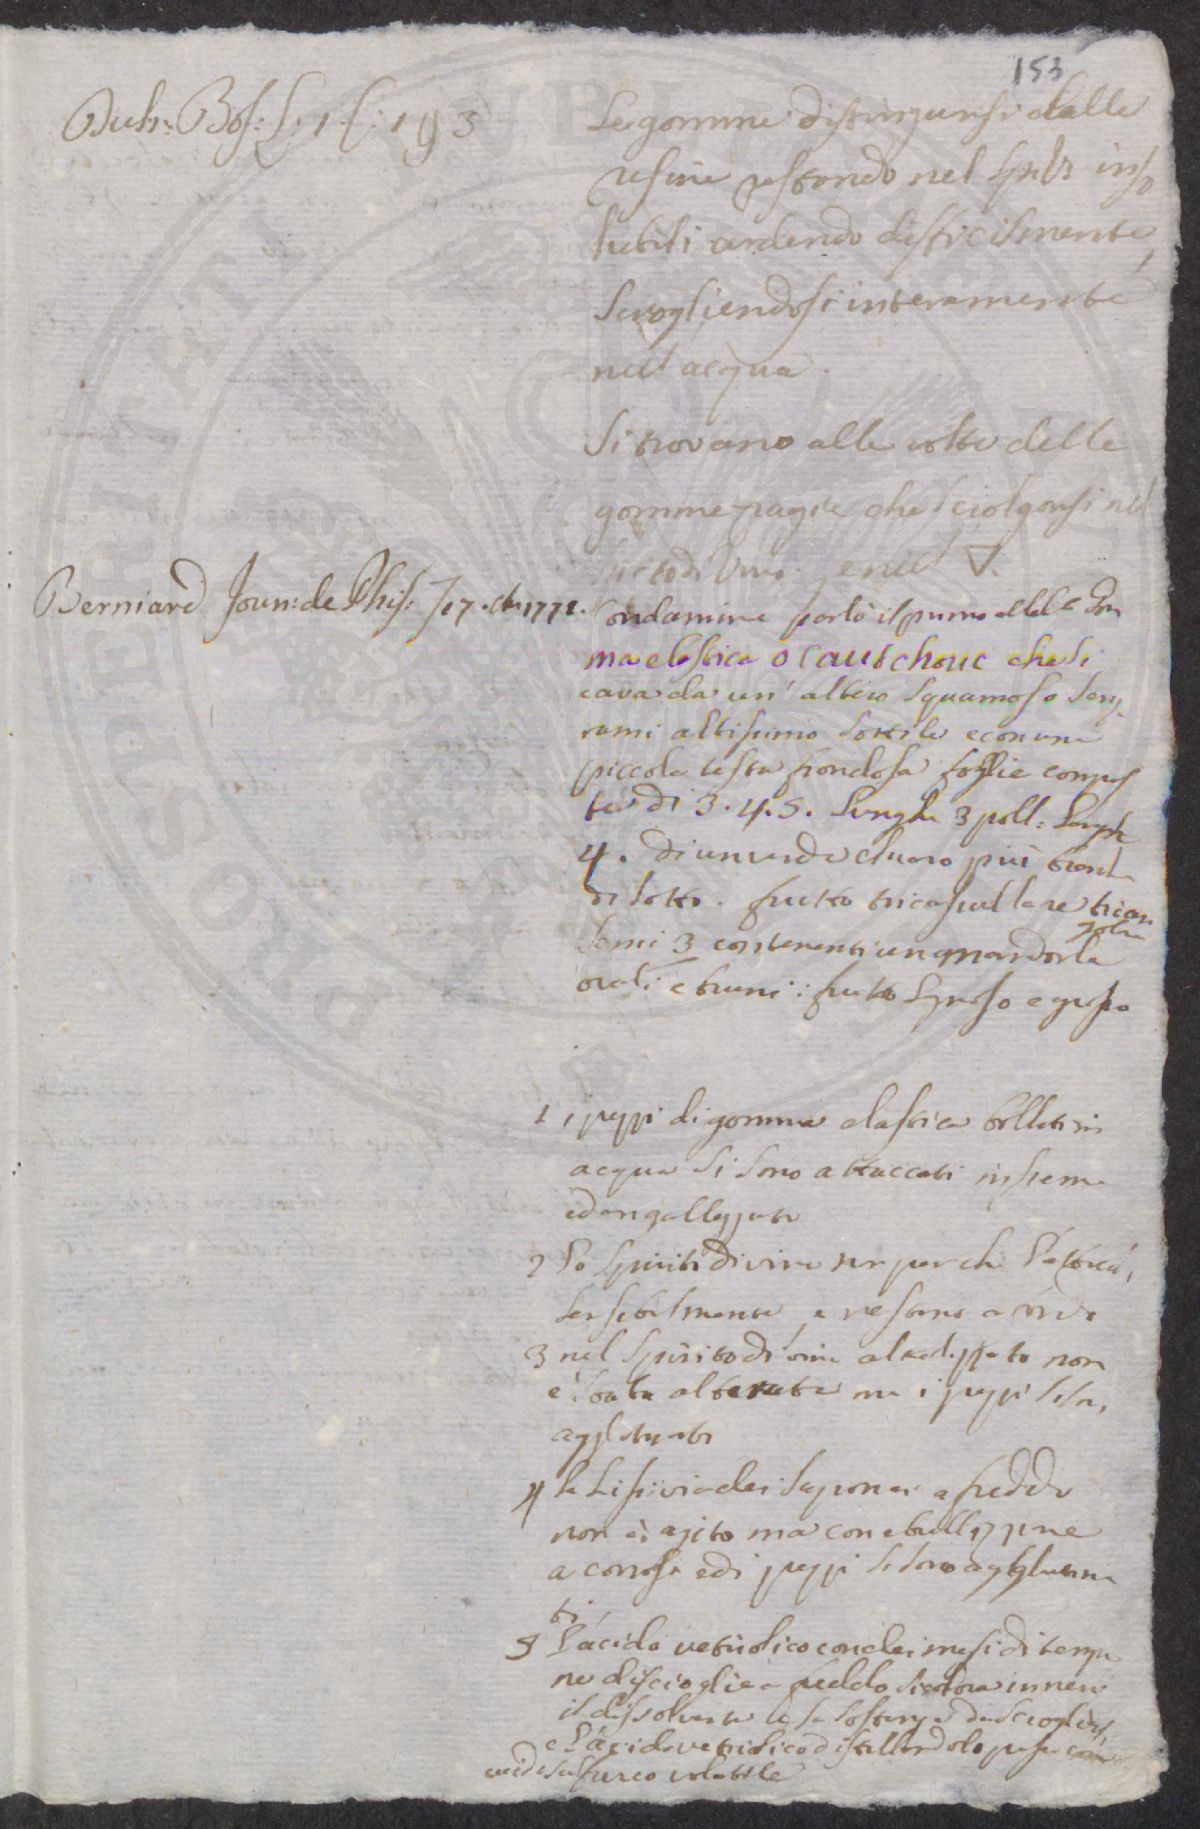 153
Duh: Bos: L: 1. C: 193
Le gomme distinguonsi dalle
resine restando nel spir inso
lubili ardendo difficilmente,
sciogliendosi interamente
nell'acqua.
Si trovano alle volte delle
gomme ragie che sciolgonsi nel
spirito di vino, e nell' ▽.
Berniard Journ: de Phis: T 17. 1771.
Condamine parlò il primo della Gom
ma elastica o Cautchouc che si
cava da un' albero squamoso senz
rami altissimo sottile e con una
piccola testa frondosa foglie compos
te di 3. 4. 5. lunghe 3 poll: larghe
4. di un verde chiaro più
di sotto. frutto tricapsullare trian
golare
semi 3 contenenti una mandorla
ovali e bruni: frutto legnoso e grosso
1 i pezzi di gomma elastica bolliti in
acqua si sono attaccati insieme
ed
2 Lo spirito di vino
sensibilmente, e restano
3 nel spirito di vino alkalizzato non
è stata alterata ma i pezzi si son,
agglutinati
4 la lisivia dei saponai a freddo
non à agito ma con ebullizzione
a corrosa ed i pezzi si sono agglutina
ti.
5 L'acido vetriolico con dei mesi di tempo
ne discioglie a freddo si colora in nero
il dissolvente la sostanza
e l'acido vetriolico distillandolo passa
acido sulfureo volatile